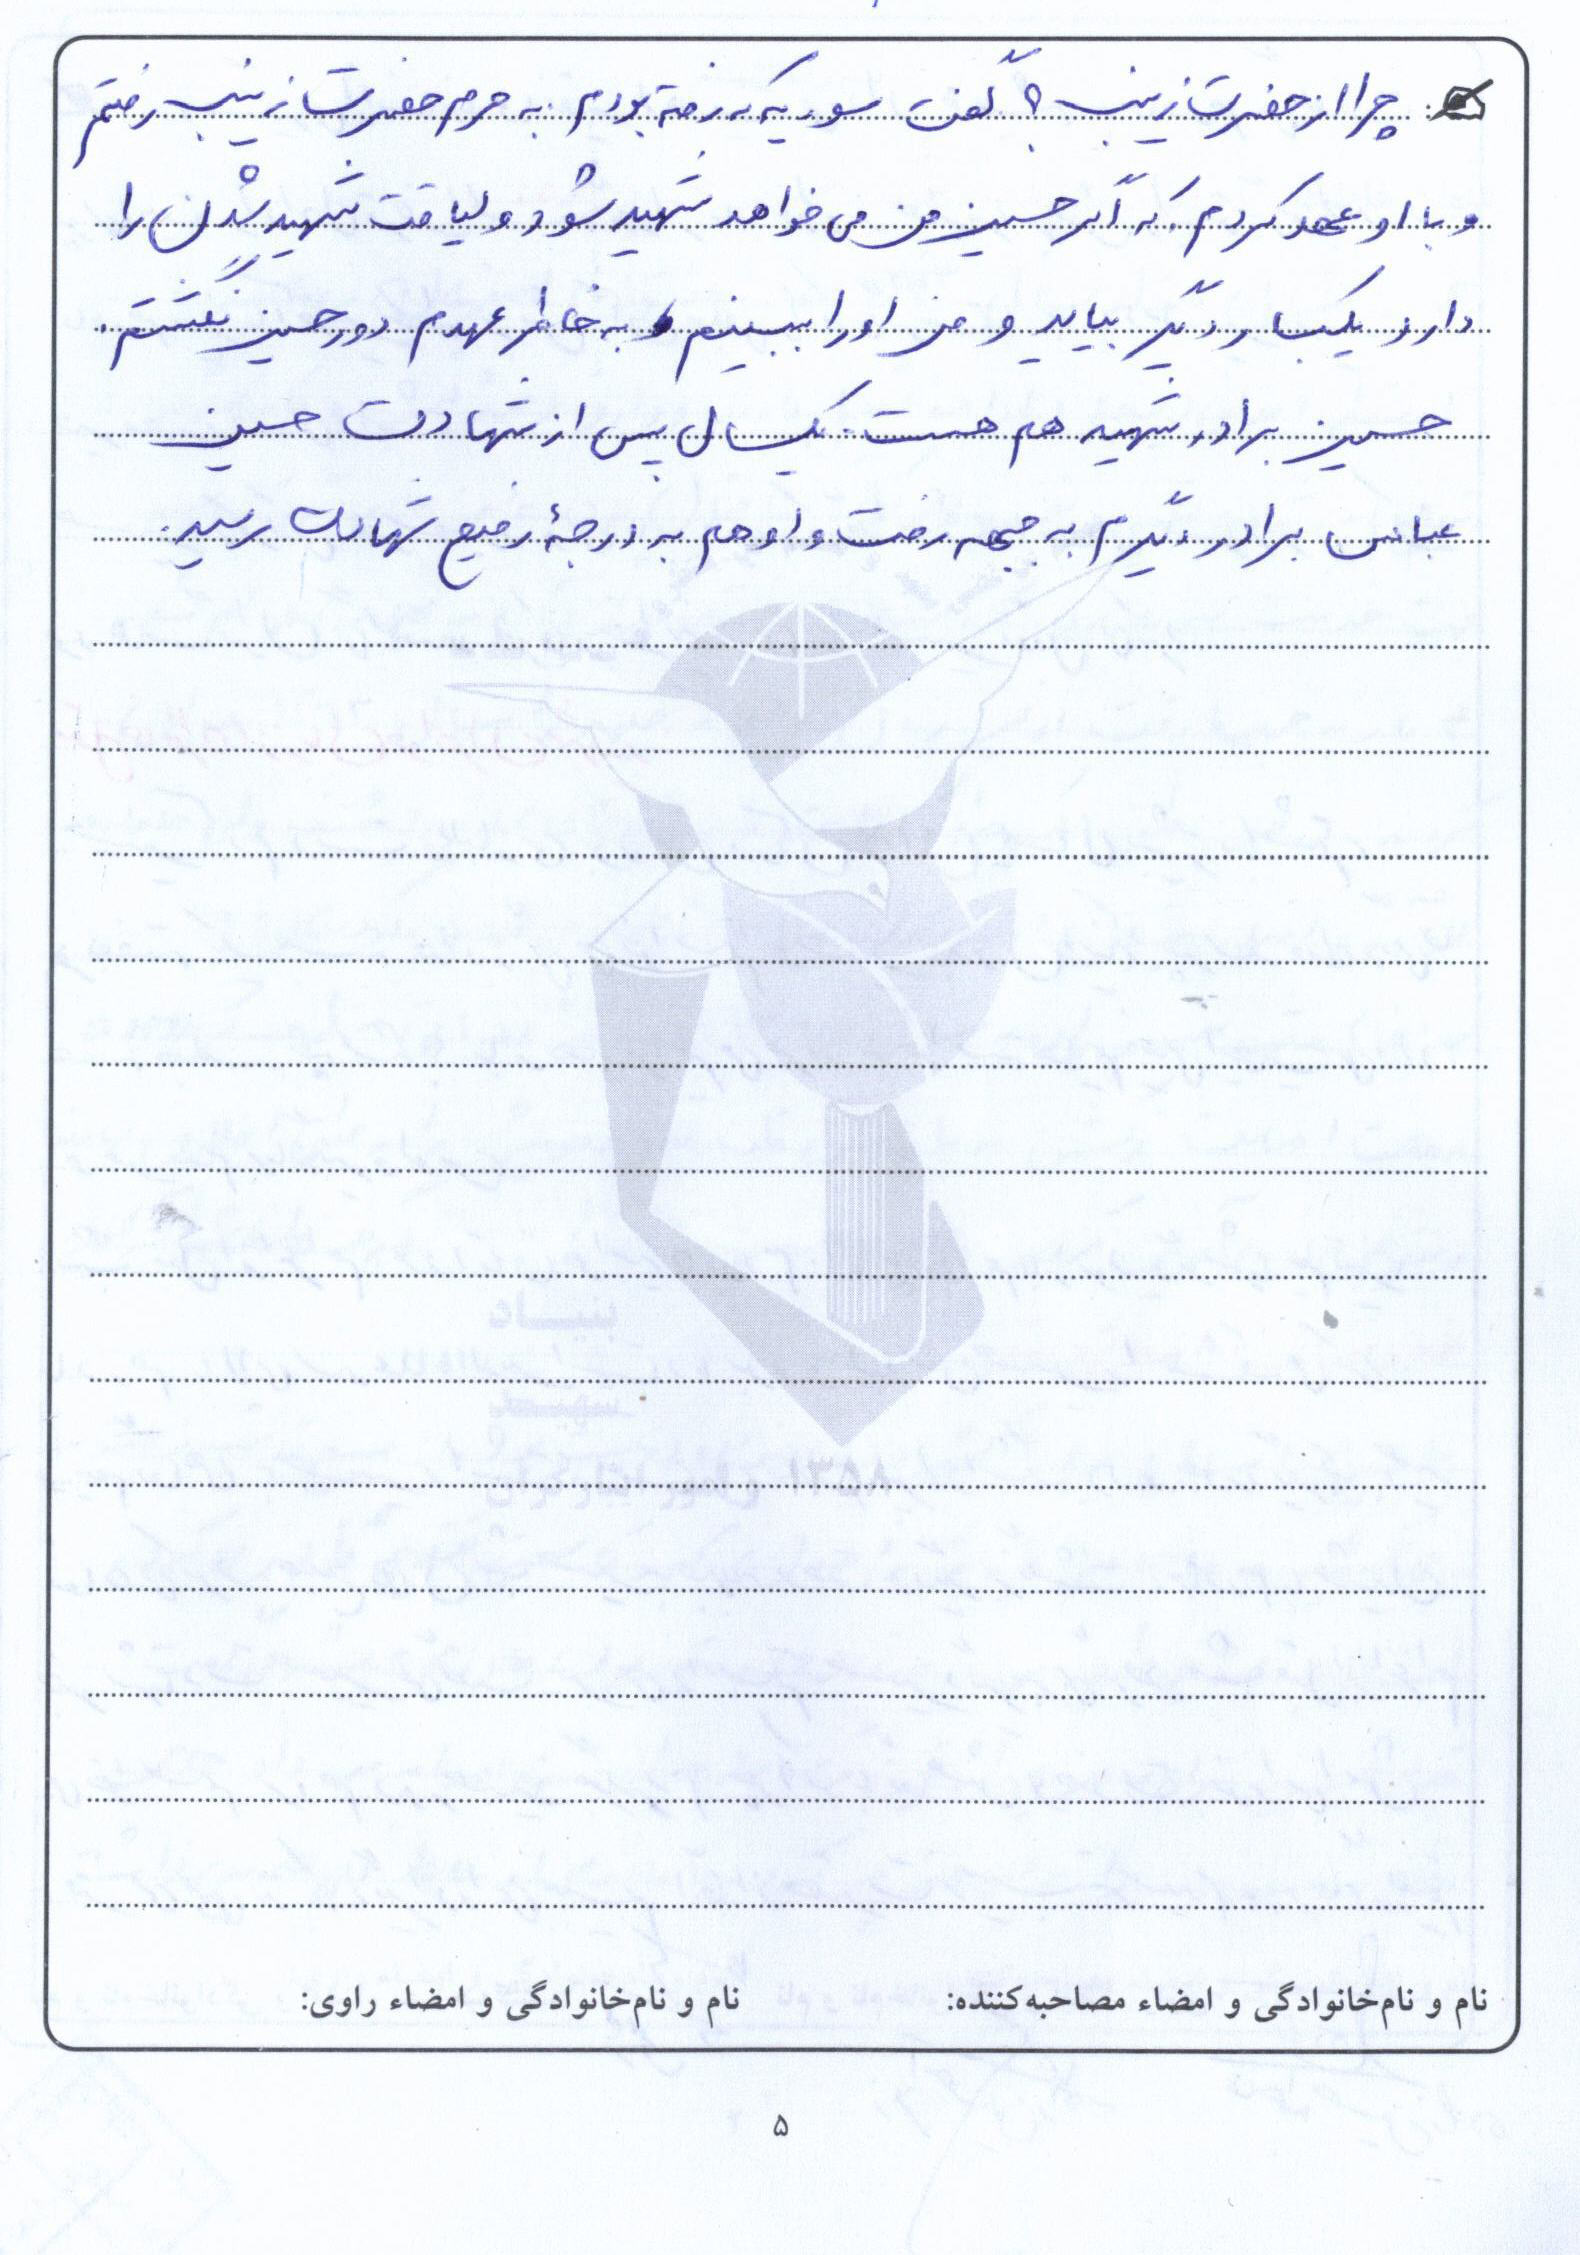 چرا از حضرت زینب؟ گفت سوریه که رفته بودم به حرم حضرت زینب رفتم
و با او عهد کردم که اگر حسین من می خواهد شهید شود و لیاقت شهید شدن را
دارد یکبار دیگر بیاید و من او را ببینم و به خاطر عهدم دور حسین نگشتم.
حسین برادر شهید هم هست. یکسال پس از شهادت حسین
عباس برادر دیگرم به جبهه رفت و او هم به درجۀ رفیع شهادت رسید.
نام و نام‌خانوادگی و امضاء مصاحبه‌کننده:
نام و نام‌خانوادگی و امضاء راوی:
۵